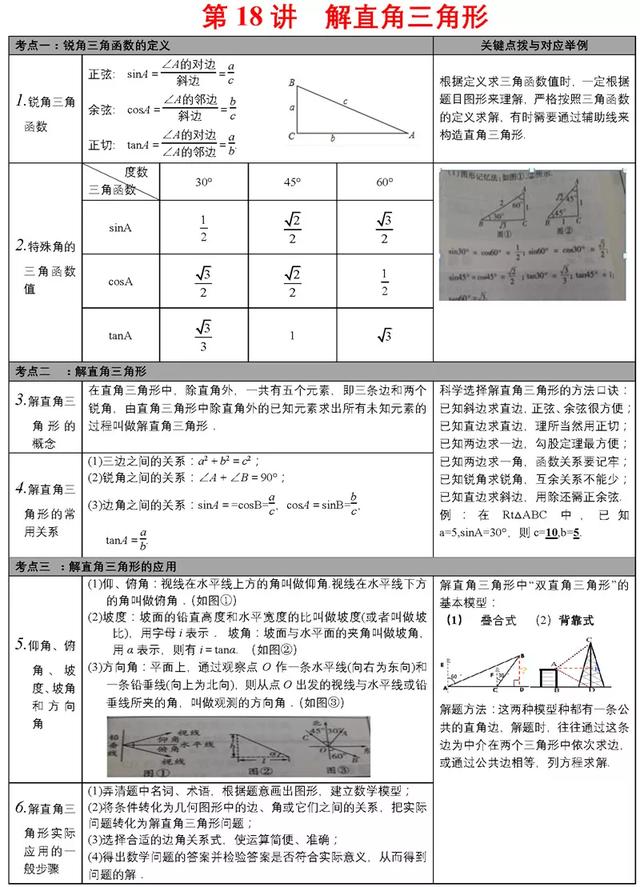 第 18 讲 解直角三角形
考点一：锐角三角函数的定义
关键点拨与对应举例
1.锐角三角
函数
正弦: sinA=∠A的对边/斜边=a/c
余弦: cosA=∠A的邻边/斜边=b/c
正切: tanA=∠A的对边/∠A的邻边=a/b.
B
a
c
C
b
A
根据定义求三角函数值时，一定根据
题目图形来理解，严格按照三角函数
的定义求解，有时需要通过辅助线来
构造直角三角形.
2.特殊角的
三角函数
值
度数
三角函数
30° 45° 60°
sinA 1/2 √2/2 √3/2
cosA √3/2 √2/2 1/2
tanA √3/3 1 √3
(1)图形记忆法:如图①、②所示.
图① 图②
sin30° = cos60° = 1/2; sin60° = cos30° = √3/2;
sin45°=cos45° = √2/2; tan30° = √3/3; tan45° = 1;
tan60°=√3.
考点二 ：解直角三角形
3.解直角三
角形的
概念
在直角三角形中，除直角外，一共有五个元素，即三条边和两个
锐角，由直角三角形中除直角外的已知元素求出所有未知元素的
过程叫做解直角三角形．
科学选择解直角三角形的方法口诀：
已知斜边求直边,正弦、余弦很方便；
已知直边求直边，理所当然用正切；
已知两边求一边，勾股定理最方便；
已知两边求一角，函数关系要记牢；
已知锐角求锐角，互余关系不能少；
已知直边求斜边，用除还需正余弦.
例：在 Rt△ABC 中，已知
a=5,sinA=30°，则 c=10,b=5.
4.解直角三
角形的常
用关系
(1)三边之间的关系：a²＋b²＝c²；
(2)锐角之间的关系：∠A＋∠B＝90°；
(3)边角之间的关系：sinA＝=cosB=a/c，cosA＝sinB=b/c，
tanA＝a/b.
考点三 ：解直角三角形的应用
5.仰角、俯
角、坡
度、坡角
和方向
角
(1)仰、俯角：视线在水平线上方的角叫做仰角.视线在水平线下方
的角叫做俯角．(如图①)
(2)坡度：坡面的铅直高度和水平宽度的比叫做坡度(或者叫做坡
比)，用字母 i 表示． 坡角：坡面与水平面的夹角叫做坡角，
用 α 表示，则有 i＝tanα. (如图②)
(3)方向角：平面上，通过观察点 O 作一条水平线(向右为东向)和
一条铅垂线(向上为北向)，则从点 O 出发的视线与水平线或铅
垂线所夹的角，叫做观测的方向角．(如图③)
铅垂线 视线 仰角 水平线 俯角 视线
图① 图② 图③
北 45° 30° 东 60° O
解直角三角形中“双直角三角形”的
基本模型：
(1) 叠合式 (2) 背靠式
解题方法：这两种模型种都有一条公
共的直角边，解题时，往往通过这条
边为中介在两个三角形中依次求边，
或通过公共边相等，列方程求解.
6.解直角三
角形实际
应用的一
般步骤
(1)弄清题中名词、术语，根据题意画出图形，建立数学模型；
(2)将条件转化为几何图形中的边、角或它们之间的关系，把实际
问题转化为解直角三角形问题；
(3)选择合适的边角关系式，使运算简便、准确；
(4)得出数学问题的答案并检验答案是否符合实际意义，从而得到
问题的解．